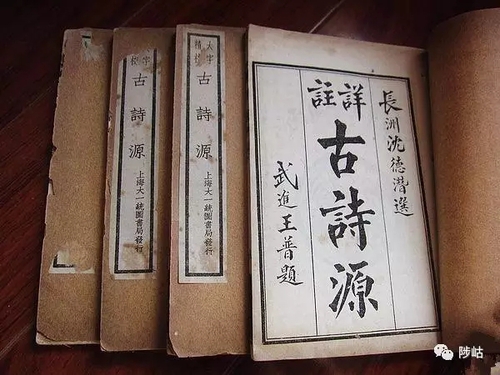 長洲沈德潛選
詳註
古詩源
武進王普題
大字
精校
古詩源
上海大一統圖書局發行
字
校
古詩源
上海大一統圖書局發行
陟岵